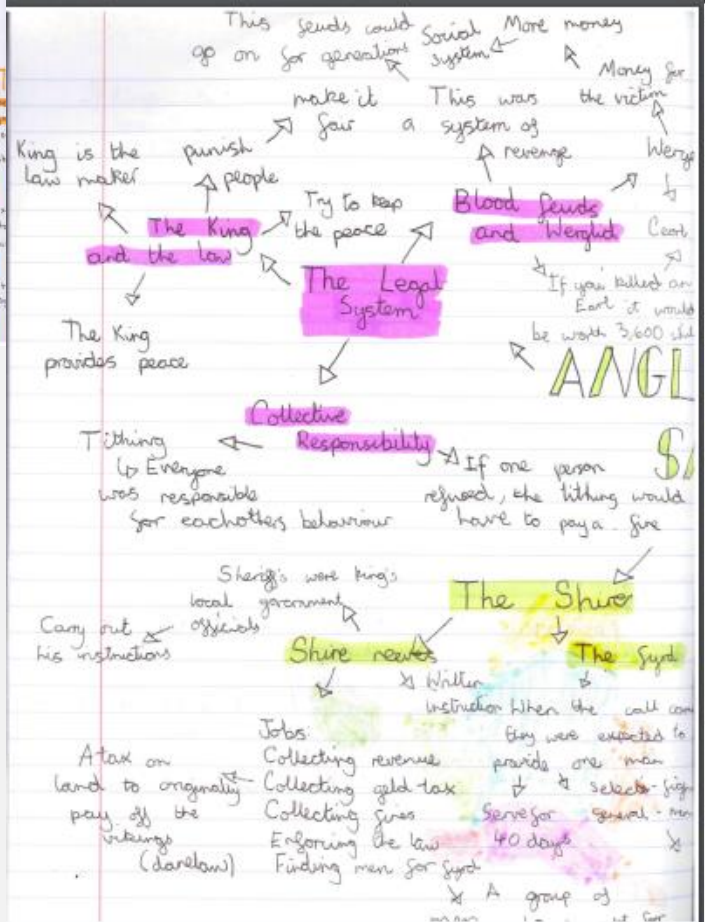 This feuds could
go on for generations
Social
system
More money
Money for
the victim
make it
fair
This was
a system of
revenge
King is the
law maker
punish
people
Try to keep
the peace
The King
and the law
Blood feuds
and Werglid
The Legal
System
If you killed an
Earl it would
be worth 3,600
The King
provides peace
ANGL
Collective
Responsibility
Tithing
↳ Everyone
was responsible
for eachothers behaviour
If one person
refused, the tithing would
have to pay a fine
The Shire
Sheriff's were king's
local government
officials
Carry out
his instructions
Shire reeves
The fyrd
Written
instruction
When the call
they were expected to
provide one man
select-
general -
Serve for
40 days
Jobs:
Collecting revenue
Collecting geld tax
Collecting fines
Enforcing the law
Finding men for fyrd
A tax on
land to originally
pay off the
vikings
(danelaw)
A group of